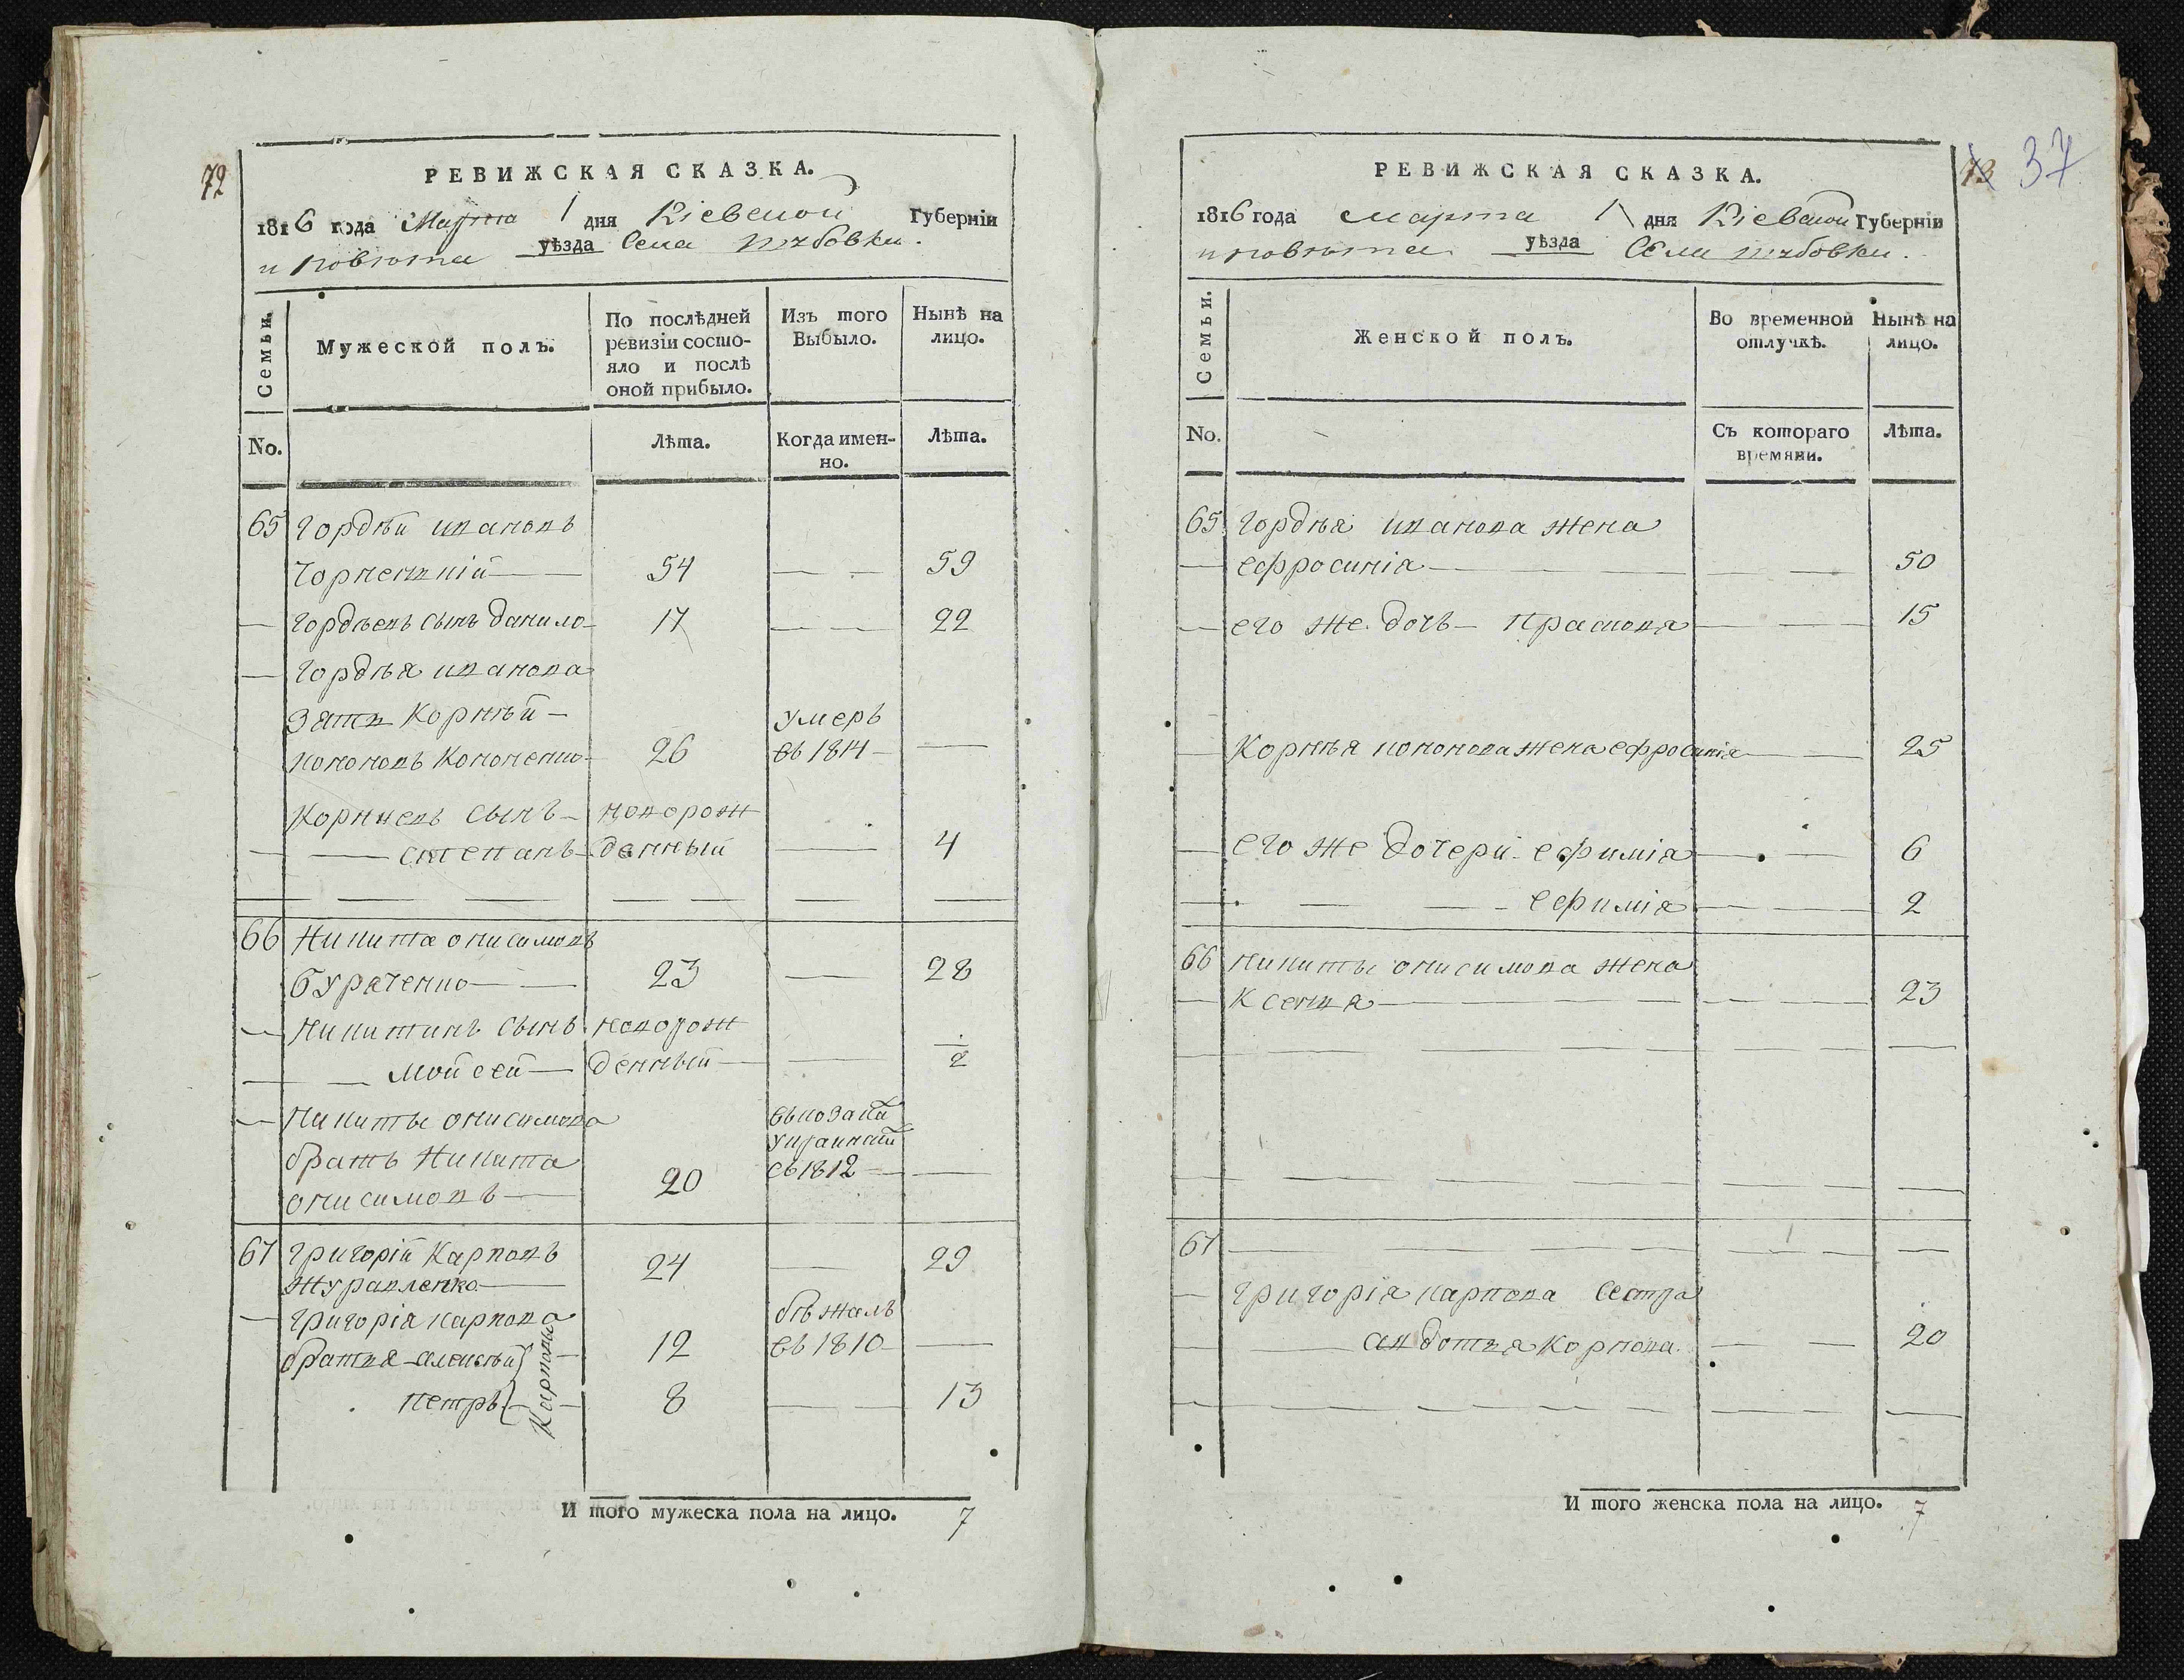 72
РЕВИЖСКАЯ СКАЗКА.
1816 года Марта 1 дня Кіевской Губерніи
и повѣта уѣзда Села
Семьи.
Мужеской полъ.
По послѣдней ревизіи состояло и послѣ оной прибыло.
Изъ того Выбыло.
Нынѣ на лицо.
No.
Лѣта.
Когда именно.
Лѣта.
65 Гордѣй ивановъ
54 — — 59
— Гордѣевъ сынъ данило 17 — — 22
— Гордѣя иванова
Зять Корнѣй — умеръ
Кононовъ Кононенко 26 въ 1814 —
Корнѣевъ сынъ — новорож
— — степанъ — денный — 4
66 Никита онисимовъ
Бураченко — — 23 — 28
— Никитинъ сынъ новорож
— — мойсей — денный — — 2
— Никиты онисимова въ козаки
братъ Никита украинский
онисимовъ — 20 въ 1812 —
67 григорій Карповъ 24 — 29
Журавленко —
— григорія карпова бѣжалъ
братья — алексѣй — 12 въ 1810 —
петръ — 8 — — 13
Карповы
И того мужеска пола на лицо. 7
73 37
РЕВИЖСКАЯ СКАЗКА.
1816 года марта 1 дня Кіевской Губерніи
и повѣта уѣзда Села
Семьи.
Женской полъ.
Во временной отлучкѣ.
Нынѣ на лицо.
No.
Съ котораго времяни.
Лѣта.
65 Гордѣя иванова жена
— ефросинія — — — 50
— его же дочь — Прасковя — — 15
— Корнѣя кононова жена ефросинія — — 25
— его же дочери ефимія — — 6
— — — ефимія — — 2
66 никиты онисимова жена
— Ксенія — — — 23
67 — — — —
— григорія карпова сестра
— — авдотья Корпова — — 20
И того женска пола на лицо. 7